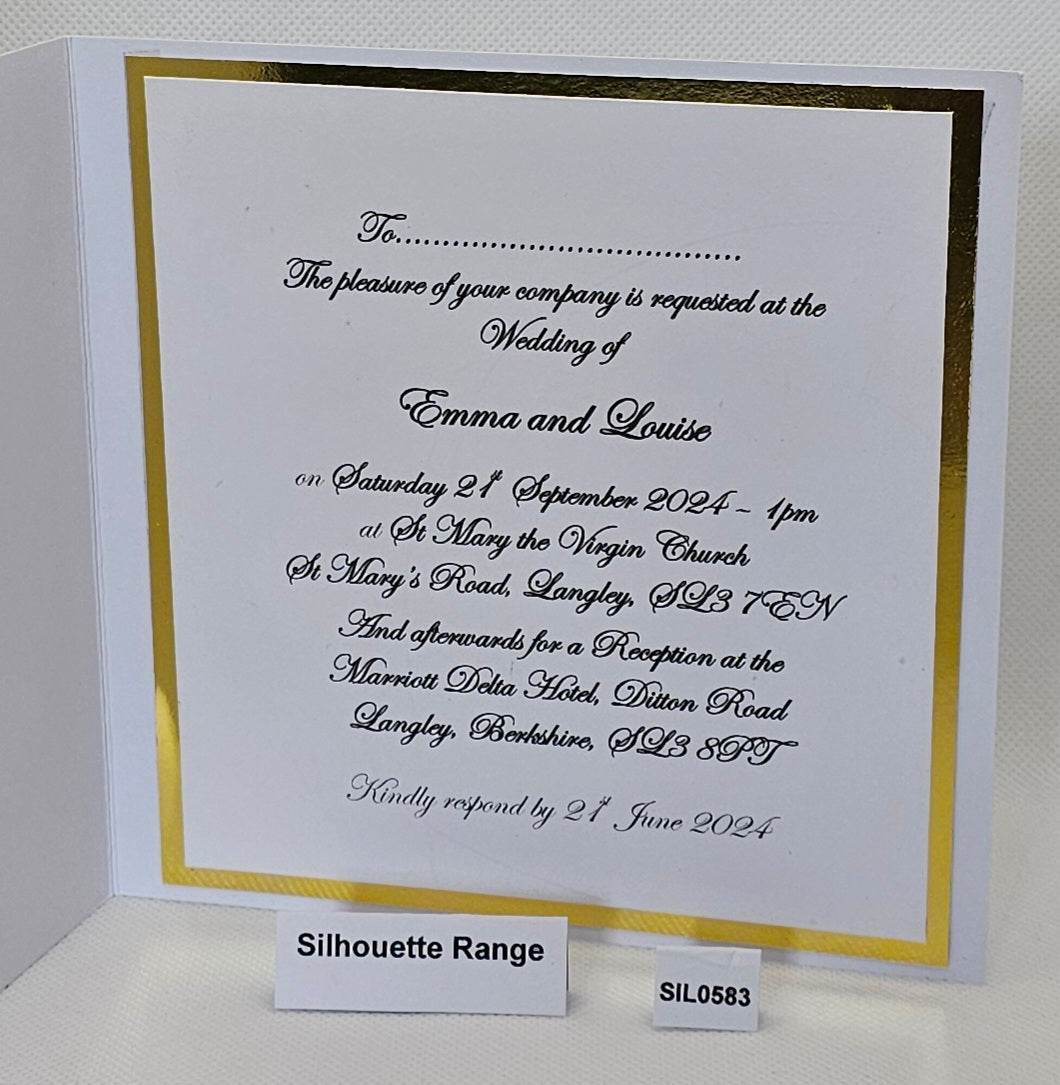 To......................................
The pleasure of your company is requested at the
Wedding of
Emma and Louise
on Saturday 21st September 2024 ~ 1pm
at St Mary the Virgin Church
St Mary's Road, Langley, SL3 7EN
And afterwards for a Reception at the
Marriott Delta Hotel, Ditton Road
Langley, Berkshire, SL3 8PT
Kindly respond by 21st June 2024
Silhouette Range
SIL0583